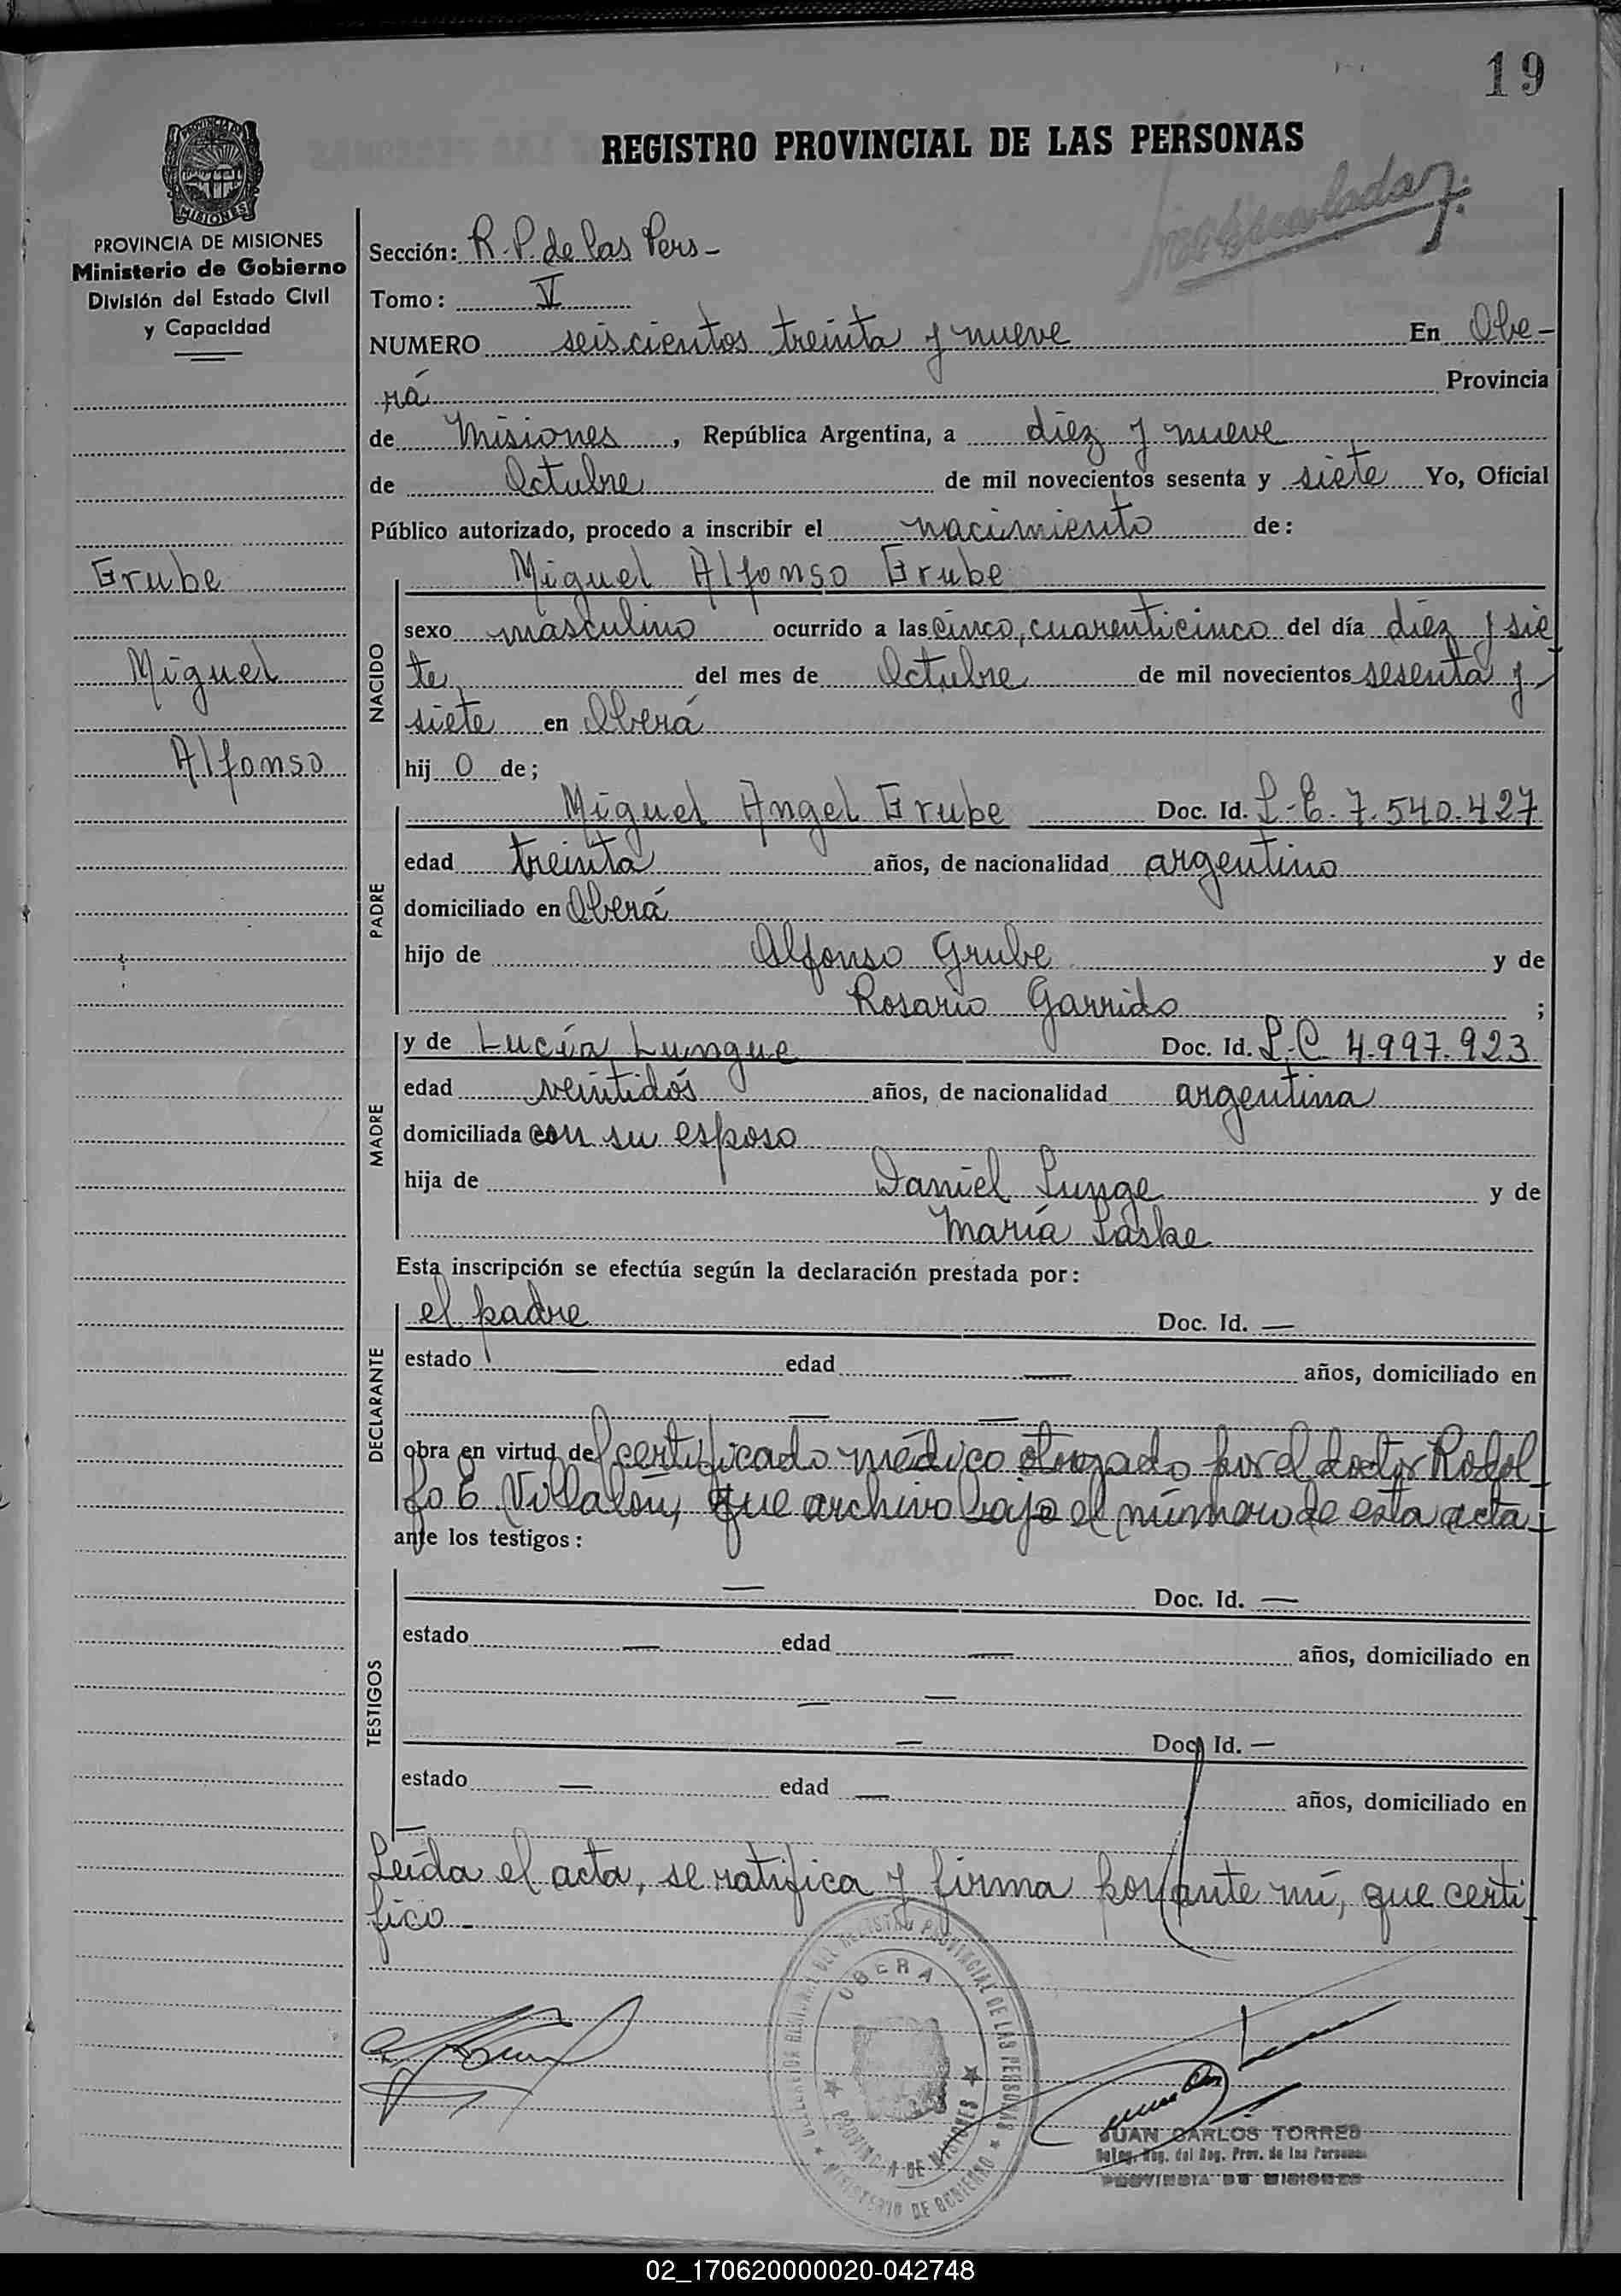 19
REGISTRO PROVINCIAL DE LAS PERSONAS
PROVINCIA DE MISIONES
MISIONES
PROVINCIA DE MISIONES
Ministerio de Gobierno
División del Estado Civil
y Capacidad
Grube
Miguel
Alfonso
Sección: R.P. de las Pers -
Tomo: V
NUMERO seiscientos treinta y nueve En Obe-
rá Provincia
de Misiones, República Argentina, a diez y nueve
de Octubre de mil novecientos sesenta y siete Yo, Oficial
Público autorizado, procedo a inscribir el nacimiento de:
NACIDO
Miguel Alfonso Grube
sexo masculino ocurrido a las cinco, cuarenticinco del día diez y sie
te del mes de Octubre de mil novecientos sesenta y
siete en Oberá
hij o de;
PADRE
Miguel Angel Grube Doc. Id. L-E. 7.540.427
edad treinta años, de nacionalidad argentino
domiciliado en Oberá
hijo de Alfonso Grube y de
Rosario Garrido ;
MADRE
y de Lucía Lungue Doc. Id. L.C. 4.997.923
edad veintidós años, de nacionalidad argentina
domiciliada con su esposo
hija de Daniel Lunge y de
María Laske
Esta inscripción se efectúa según la declaración prestada por:
DECLARANTE
el padre Doc. Id. —
estado — edad — años, domiciliado en
— —
obra en virtud del certificado médico otorgado por el doctor Rodol
fo E. Villalón, que archivo bajo el número de esta acta.
ante los testigos:
TESTIGOS
— Doc. Id. —
estado — edad — años, domiciliado en
— —
— Doc. Id. —
estado — edad — años, domiciliado en
—
Leída el acta, se ratifica y firma por ante mí, que certi
fico -
DELEGACION REGIONAL DEL REGISTRO PROVINCIAL DE LAS PERSONAS
OBERA
PROVINCIA DE MISIONES
MINISTERIO DE GOBIERNO
JUAN CARLOS TORRES
Deleg. Reg. del Reg. Prov. de las Personas
PROVINCIA DE MISIONES
02_170620000020-042748